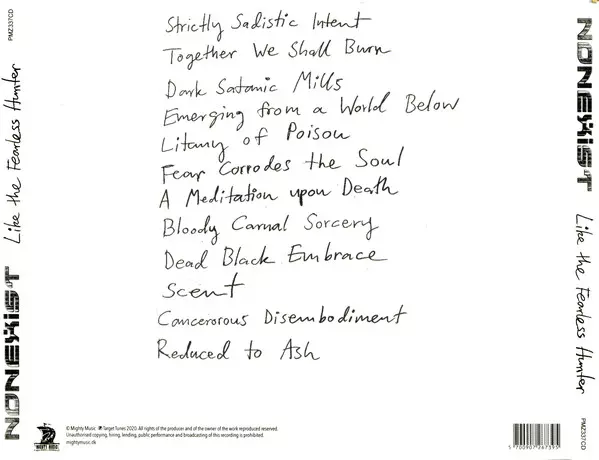 PMZ337CD
Like the Fearless Hunter
NONEXIST
Strictly Sadistic Intent
Together We Shall Burn
Dark Satanic Mills
Emerging from a World Below
Litany of Poison
Fear Corrodes the Soul
A Meditation upon Death
Bloody Carnal Sorcery
Dead Black Embrace
Scent
Cancerorous Disembodiment
Reduced to Ash
© Mighty Music ℗ Target Tunes 2020. All rights of the producer and of the owner of the work reproduced reserved.
Unauthorised copying, hiring, lending, public performance and broadcasting of this recording is prohibited.
mightymusic.dk
MIGHTY MUSIC
NONEXIST
Like the Fearless Hunter
PMZ337CD
5 700907 267395